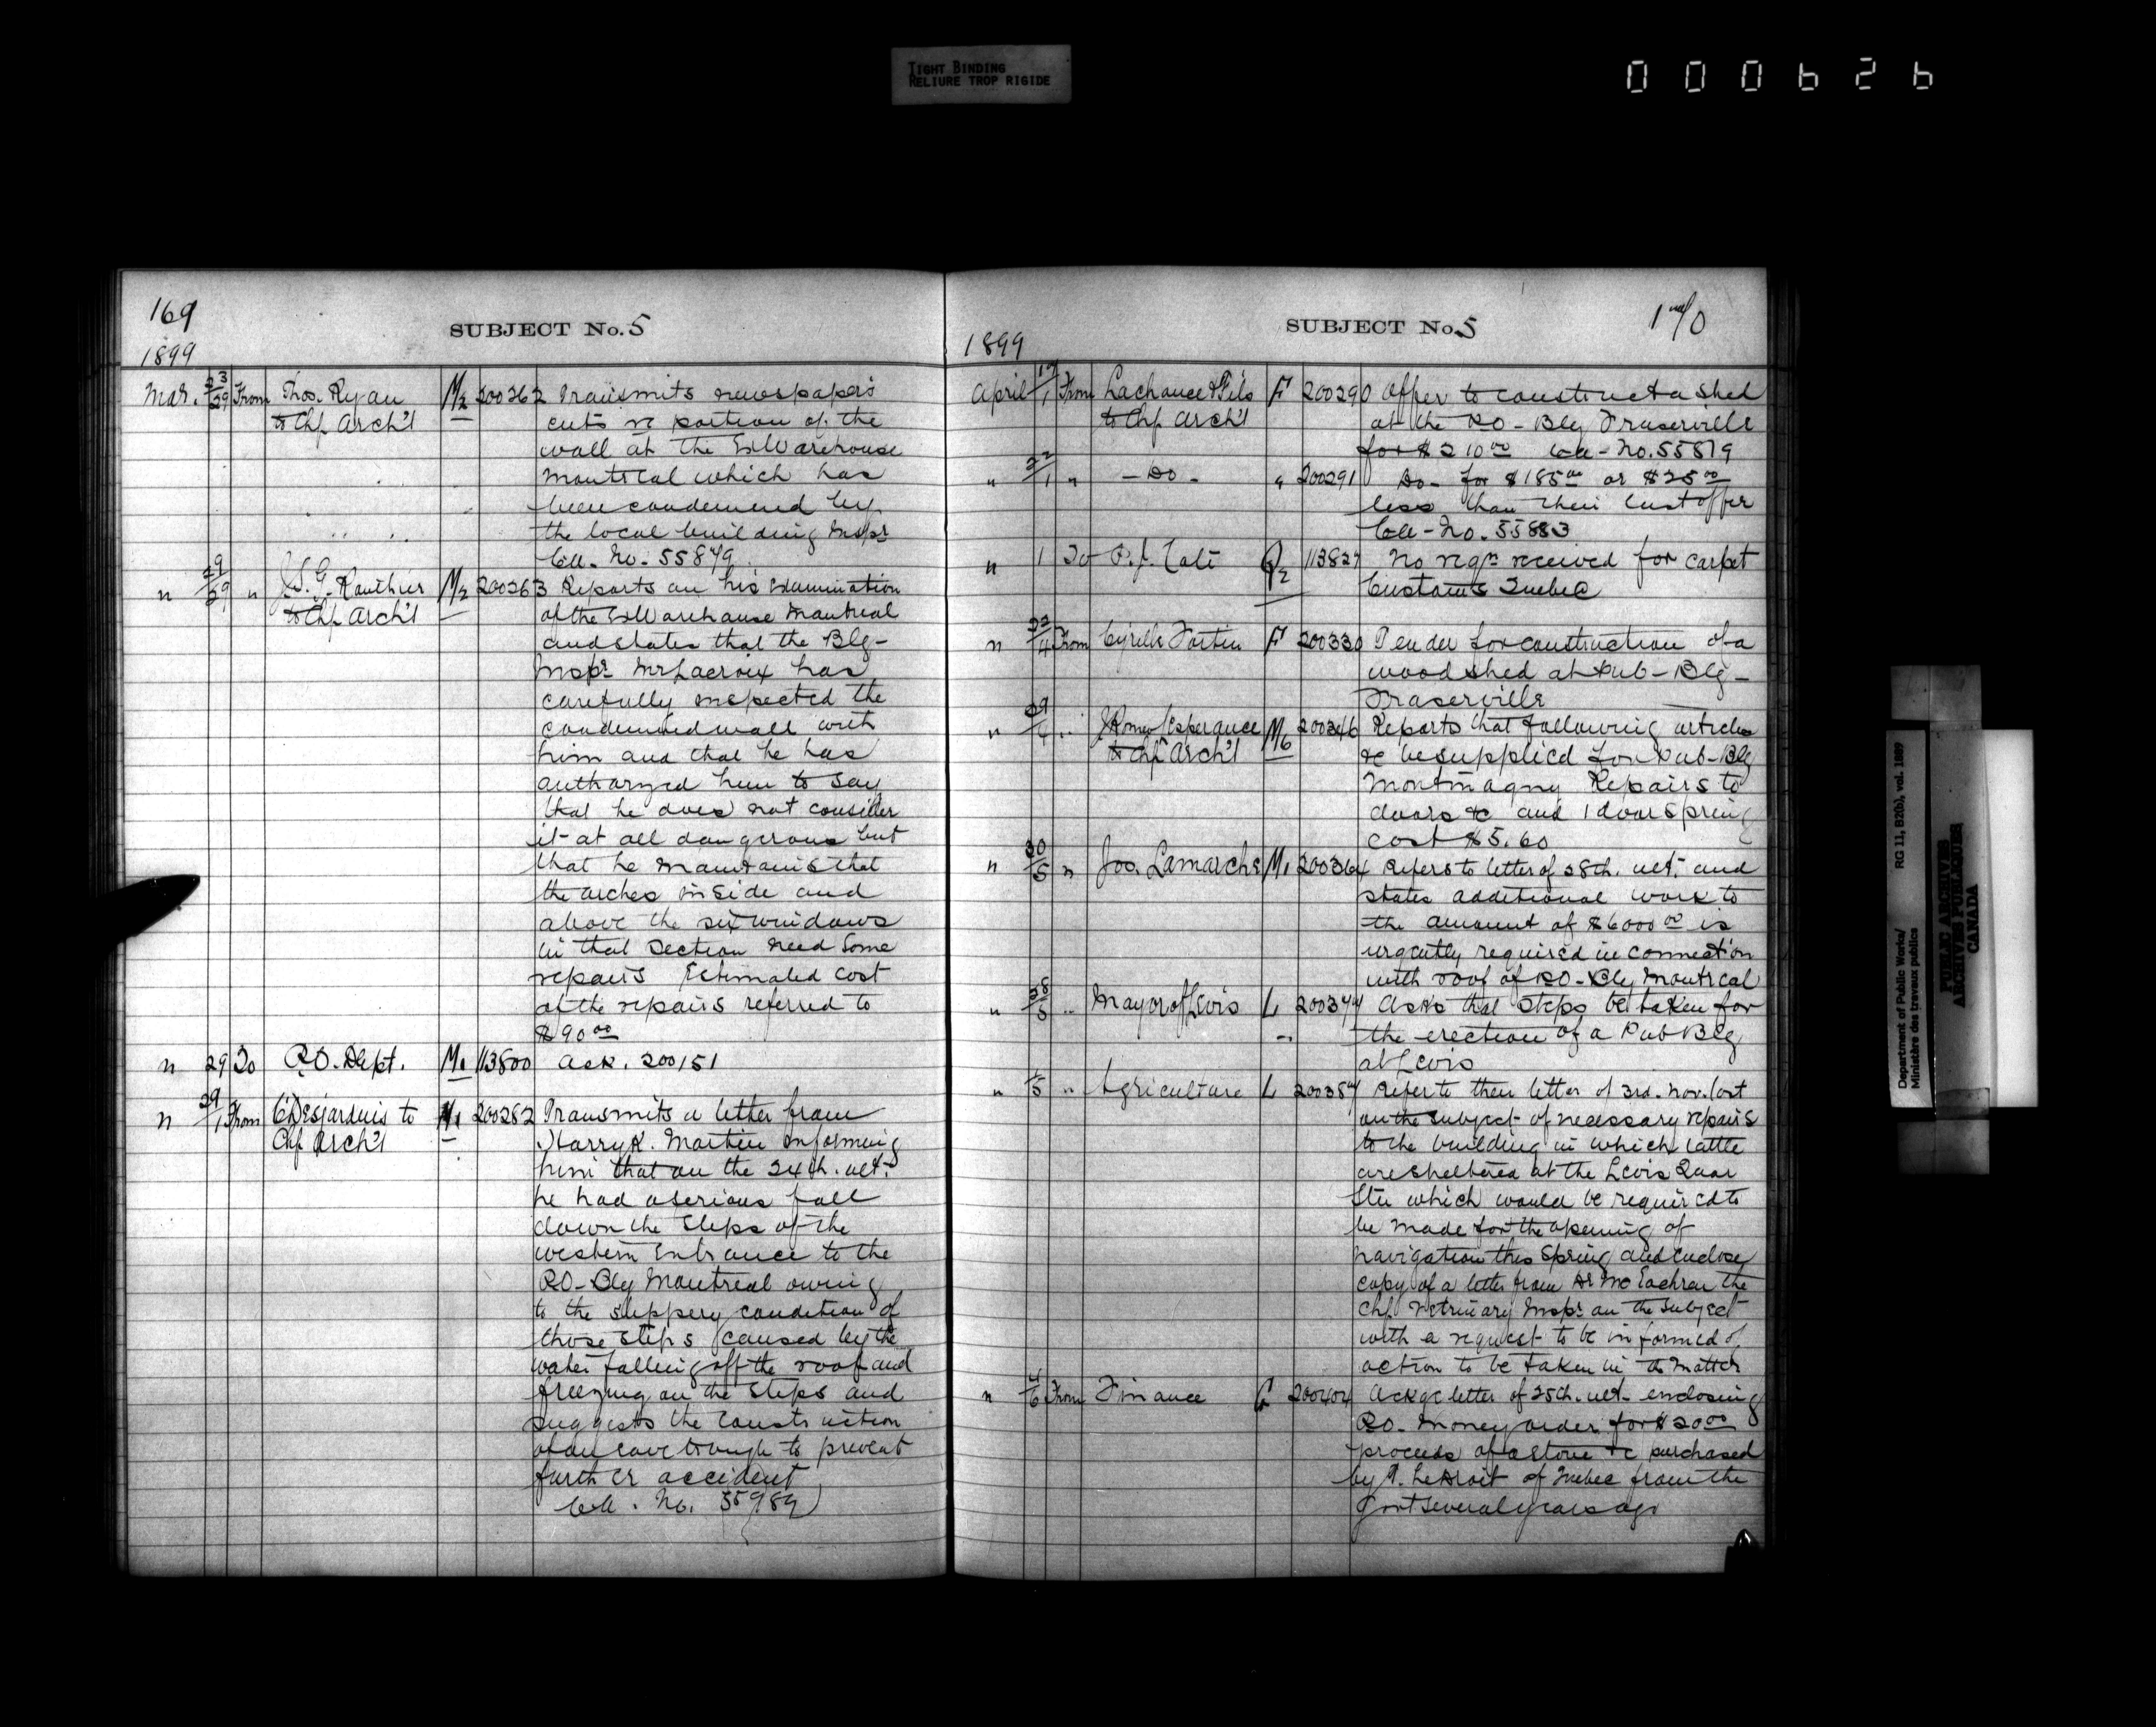 TIGHT BINDING
RELIURE TROP RIGIDE
000626
169
SUBJECT No. 5
1899
Mar. 23/29 From Thos. Ryan M2 200262 Transmits newspapers
to Chf Arch't cuts re portion of the
wall at the Ex Warehouse
Montreal which has
been condemned by
the local building Inspr
No. 55849
" 29/29 " J.S.G. Rauthier M2 200263 Reports on his examination
to Chf Arch't of the Ex Warehouse Montreal
and states that the Blg-
Inspr Mr Lacroix has
carefully inspected the
condemned wall with
him and that he has
authorized him to say
that he does not consider
it at all dangerous but
that he maintains that
the arches inside and
above the six windows
in that section need some
repairs Estimated cost
of the repairs referred to
$90 00
" 29 To P.O. Dept. M1 113800 Ack. 200151
" 29/1 From C Desjardins to M1 200282 Transmits a letter from
Chf Arch't Harry R. Martin informing
him that on the 24th. ult-
he had a serious fall
down the steps of the
western Entrance to the
P.O- Blg Montreal owing
to the slippery condition of
those steps (caused by the
water falling off the roof and
freezing on the steps and
suggests the construction
of an eave trough to prevent
further accident
No. 55989)
SUBJECT No. 5
170
1899
April 17/1 From Lachance & Fils F 200290 Offer to construct a shed
to Chf Arch't at the P.O- Blg Fraserville
for $210 00 No. 55819
" 22/1 " - Do - " 200291 Do- for $185 00 or $25 00
less than their last offer
No. 55883
" 1 To P.J. Coté Q2 113827 No reqn received for carpet
Customs Quebec
" 22/4 From Cyrille Fortin F 200330 Tender for construction of a
wood shed at Pub- Blg-
Fraserville
" 29/4 .. J Romeo Lesperance M6 200346 Reports that following articles
to Chf Arch't &c be supplied for Pub-Blg
Montmagny Repairs to
doors &c and 1 door spring
cost $5.60
" 30/5 " Jos. Lamarche M1 200364 Refers to letter of 28th. ult. and
states additional work to
the amount of $6000 00 is
urgently required in connection
with roof of P.O- Blg Montreal
" 28/5 .. Mayor of Levis L 200374 Asks that steps be taken for
the erection of a Pub Blg
at Levis
" 1/5 .. Agriculture L 200387 Refer to their letter of 3rd. Nov. last
on the subject of necessary repairs
to the building in which cattle
are sheltered at the Levis Quar
Stn which would be required to
be made for the opening of
navigation this Spring and enclose
copy of a letter from Dr McEachran the
Chf Vetrinary Inspr on the subject
with a request to be informed of
action to be taken in the matter
" 4/6 From Finance Q 200404 Ackge letter of 25th. ult- enclosing
P.O- Money order for $20 00
proceeds of a stove &c purchased
by T. LeDroit of Quebec from the
Govt several years ago
Department of Public Works/ RG 11, B2(b), vol. 1889
Ministère des travaux publics
PUBLIC ARCHIVES
ARCHIVES PUBLIQUES
CANADA